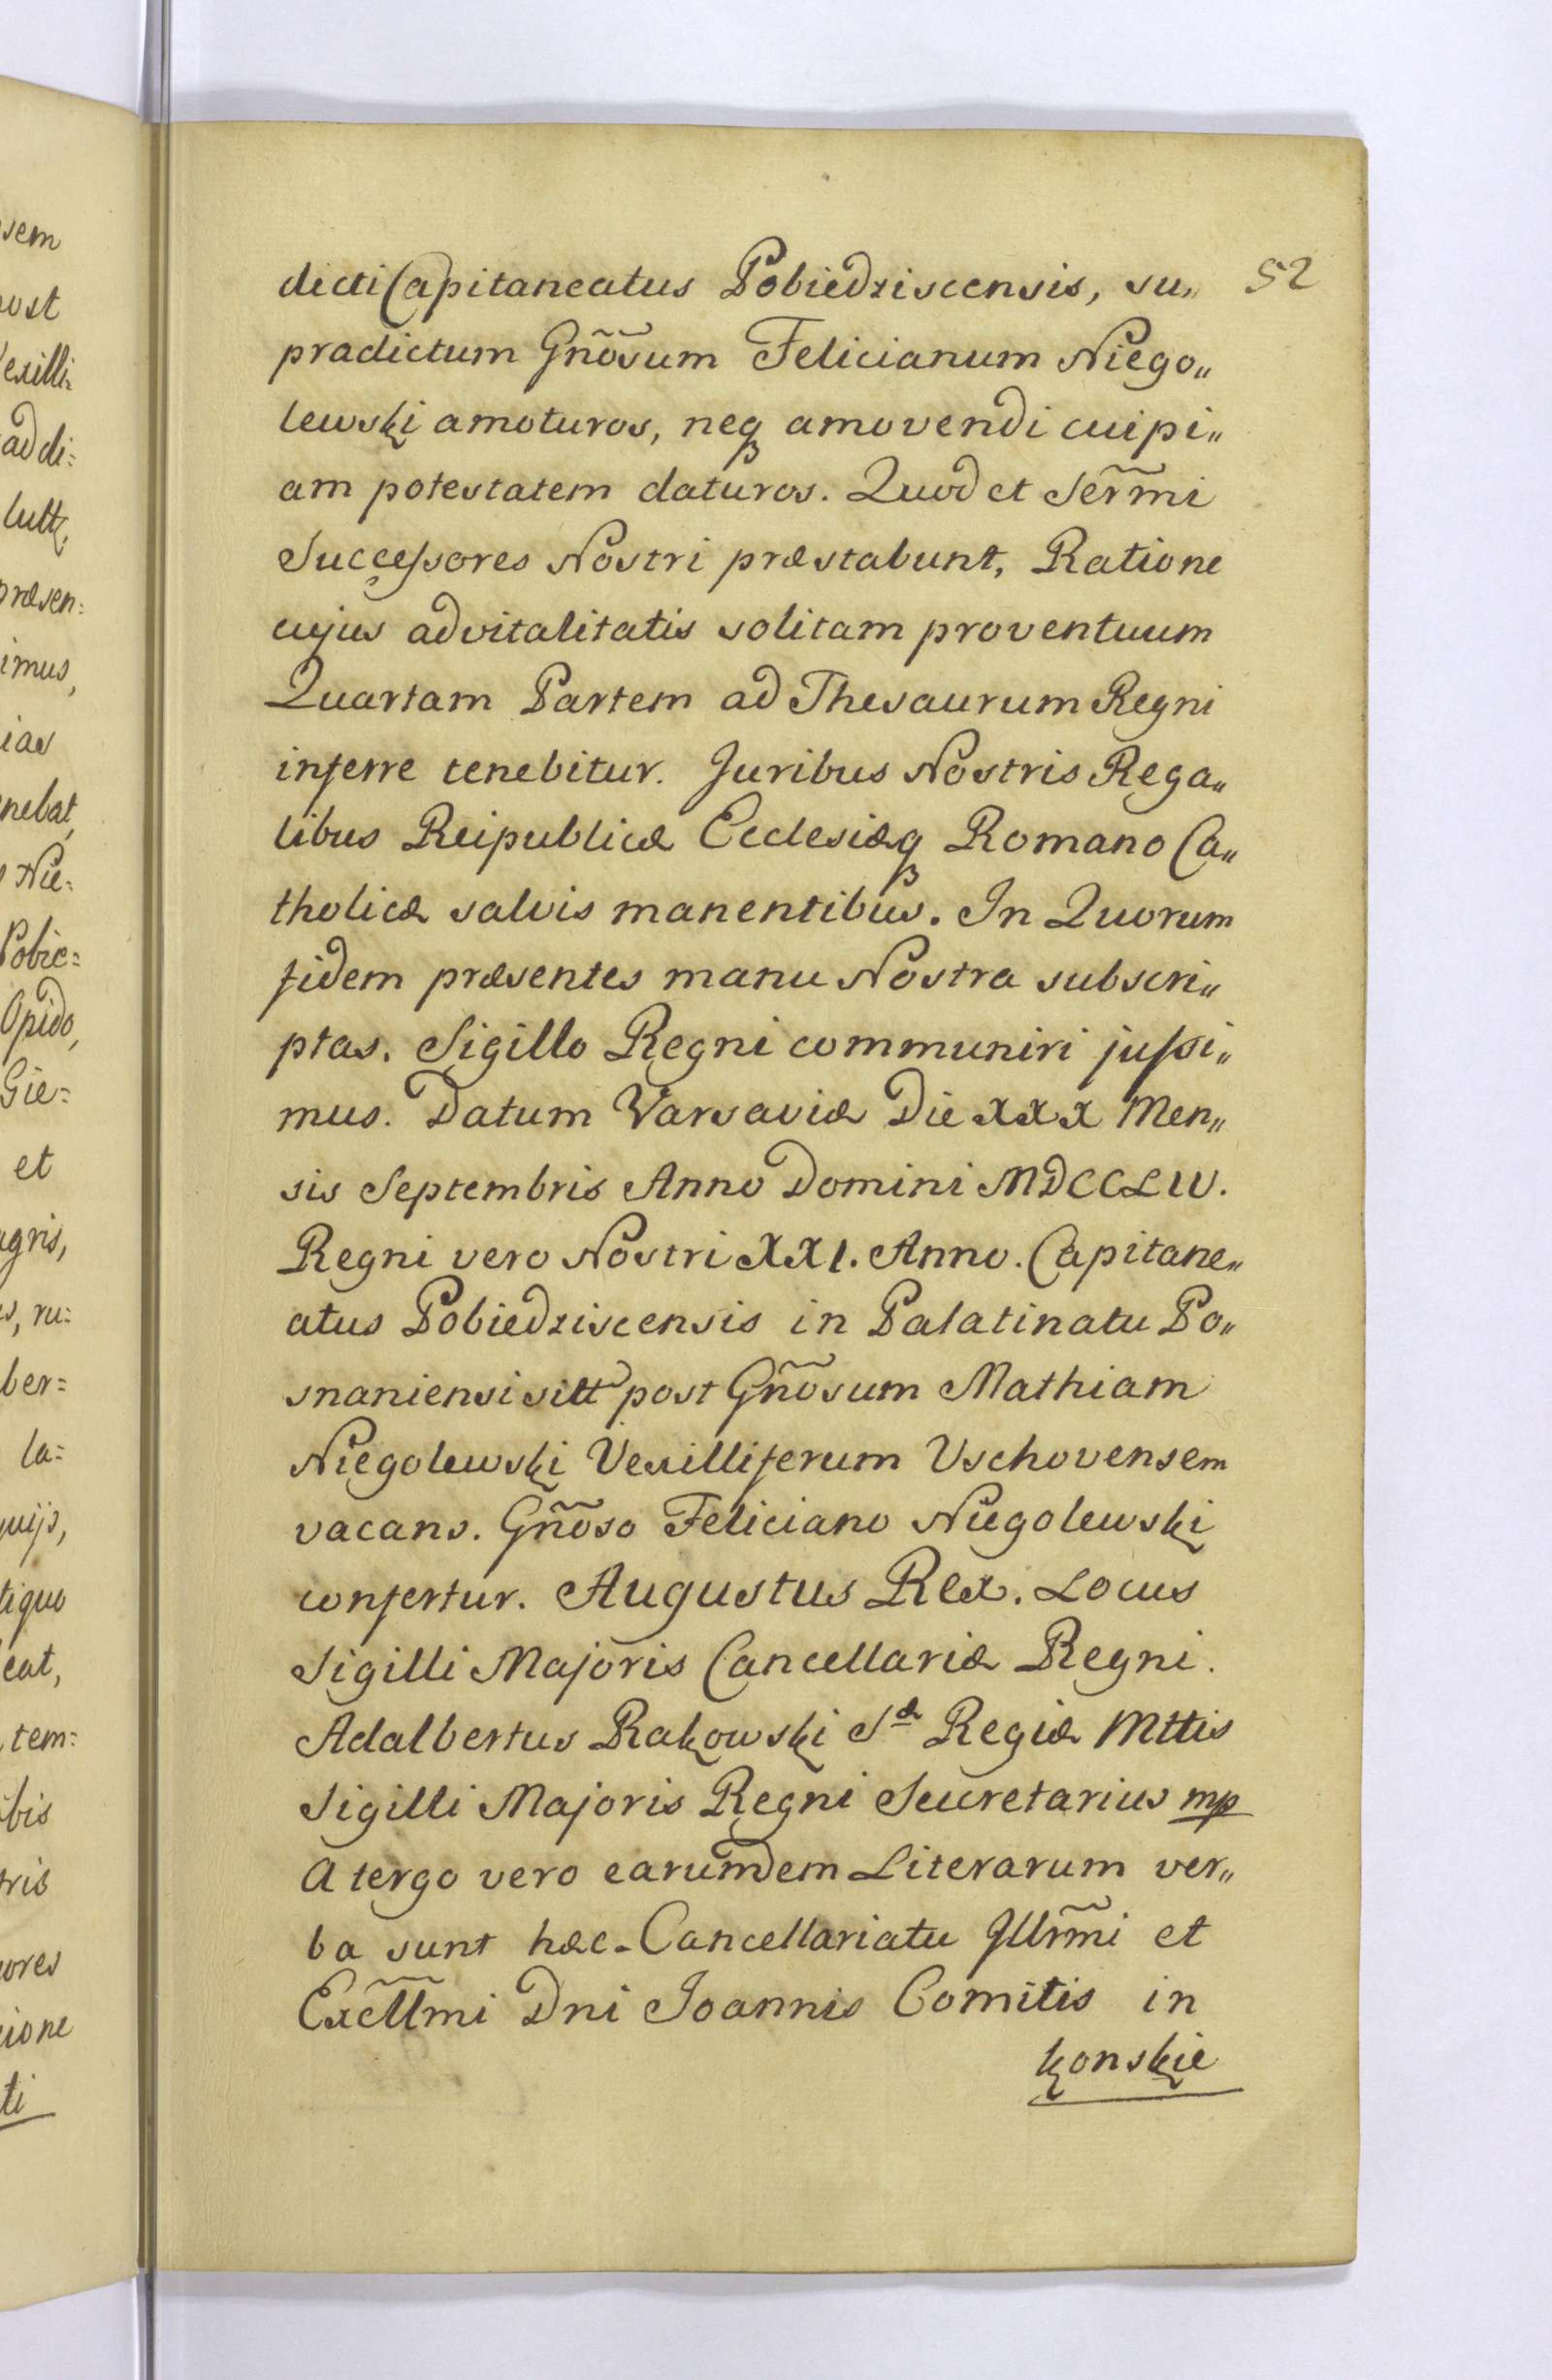 dicti Capitaneatus Pobiedziscensis, su„ 52
pradictum Gñõsum Felicianum Niego„
lewski amoturos, neq̃ amovendi cuipi„
am potestatem daturos. Quod et Serm̃i
Successores Nostri præstabunt, Ratione
cujus advitalitatis solitam proventuum
Quartam Partem ad Thesaurum Regni
inferre tenebitur. Juribus Nostris Rega„
libus Reipublicæ Ecclesiæq̃ Romano Ca„
tholicæ salvis manentibus. In Quorum
fidem præsentes manu Nostra subscri„
ptas. Sigillo Regni communiri jussi„
mus. Datum Varsaviæ Die XXX Men„
sis Septembris Anno Domini MDCCLIV.
Regni vero Nostri XXI. Anno. Capitane„
atus Pobiedziscensis in Palatinatu Po„
snaniensi sitt post Gñõsum Mathiam
Niegolewski Vexilliferum Vschovensem
vacans. Gñõso Feliciano Niegolewski
confertur. Augustus Rex. Locus
Sigilli Majoris Cancellariæ Regni.
Adalbertus Rakowski Sæ Regiæ Mttis
Sigilli Majoris Regni Secretarius mp
A tergo vero earumdem Literarum ver„
ba sunt hæc. Cancellariatu Illrm̃i et
Excll̃mi Dni Joannis Comitis in
konskie
sem
post
exilli„
ad di:
lutt,
præsen:
imus,
ias
nebat,
Nie:
Pobie:
Opido,
Gie:
et
agris,
s, ru:
ber=
la=
quijs,
tiquo
eat,
tem:
bis
ris
ores
ione
ti